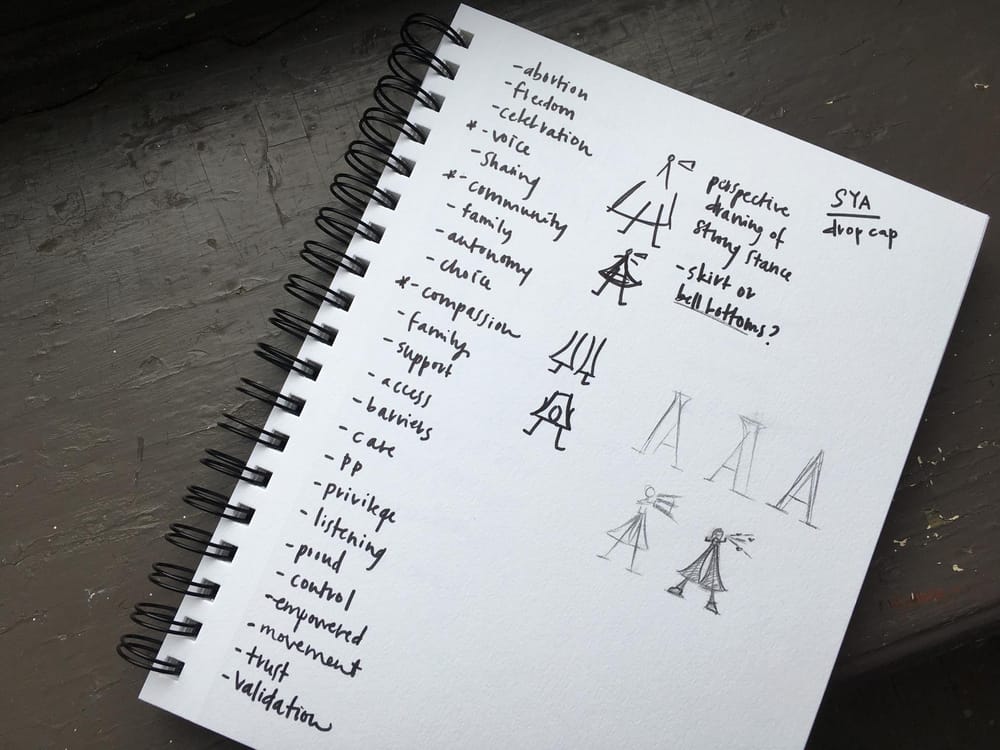 -abortion
-freedom
-celebration
*-voice
-sharing
*-community
-family
-autonomy
-choice
*-compassion
-family
-support
-access
-barriers
-care
-PP
-privilege
-listening
-proud
-control
-empowered
-movement
-trust
-validation
perspective
drawing of
strong stance
-skirt or
bell bottoms?
SYA
drop cap
A A A